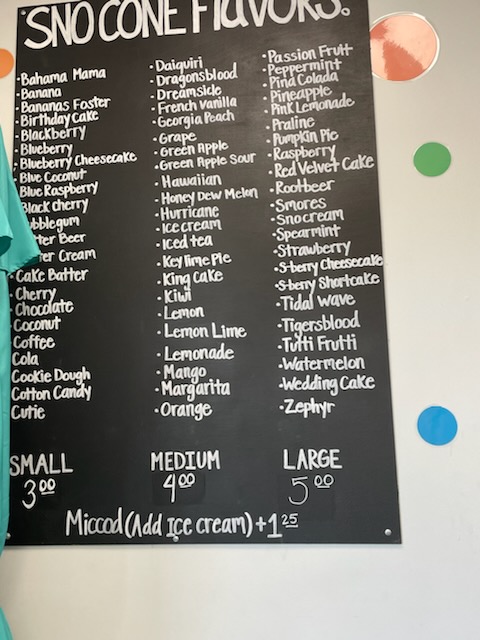 SNO CONE FLAVORS:
•Bahama Mama
•Banana
•Bananas Foster
•Birthday Cake
•Blackberry
•Blueberry
•Blueberry Cheesecake
•Blue Coconut
•Blue Raspberry
Black cherry
ubblegum
tter Beer
ter Cream
•Cake Batter
•Cherry
Chocolate
Coconut
Coffee
Cola
Cookie Dough
Cotton Candy
Cutie
•Daiquiri
•Dragonsblood
•Dreamsicle
•French Vanilla
•Georgia Peach
•Grape
•Green Apple
•Green Apple Sour
•Hawaiian
•Honey Dew Melon
•Hurricane
•Ice cream
•Iced tea
•Key lime Pie
•King Cake
•Kiwi
•Lemon
•Lemon Lime
•Lemonade
•Mango
•Margarita
•Orange
•Passion Fruit
•Peppermint
•Pina Colada
•Pineapple
•Pink Lemonade
•Praline
•Pumpkin Pie
•Raspberry
•Red Velvet Cake
•Rootbeer
•Smores
•Snocream
•Spearmint
•Strawberry
•S-berry Cheesecake
•S-berry Shortcake
•Tidal Wave
•Tigersblood
•Tutti Frutti
•Watermelon
•Wedding Cake
•Zephyr
SMALL MEDIUM LARGE
3 00 4 00 5 00
Miccod (Add Ice cream) + 1 25